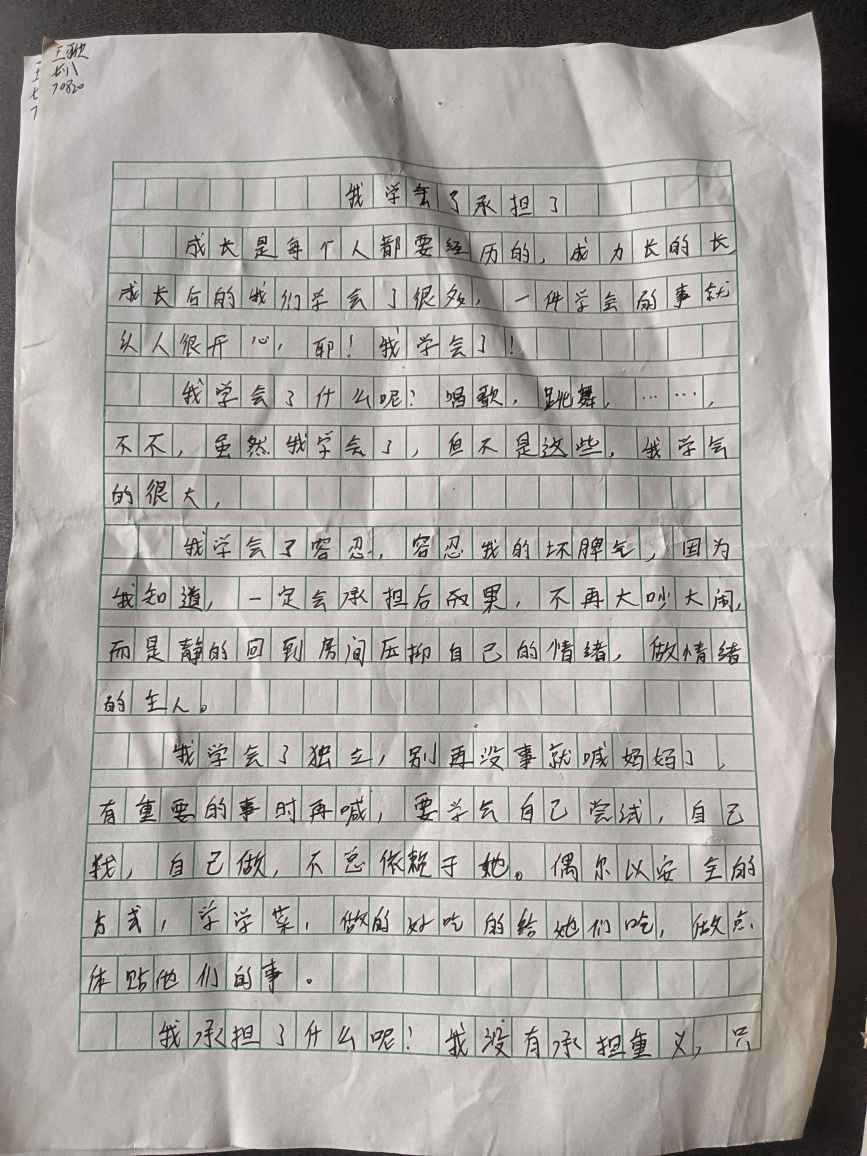 王
七八
70820
我学会了承担了
成长是每个人都要经历的，成力长的长，
成长后的我们学会了很多，一件学会的事就
从人很开心，耶！我学会了！
我学会了什么呢？唱歌，跳舞，……，
不不，虽然我学会了，但不是这些，我学会
的很大，
我学会了容忍，容忍我的坏脾气，因为
我知道，一定会承担后效果，不再大吵大闹，
而是静的回到房间压抑自己的情绪，做情绪
的主人。
我学会了独立，别再没事就喊妈妈了，
有重要的事时再喊，要学会自己尝试，自己
找，自己做，不总依靠于她。偶尔以安全的
方式，学学菜，做的好吃的给她们吃，做点
体贴他们的事。
我承担了什么呢？我没有承担重义，只